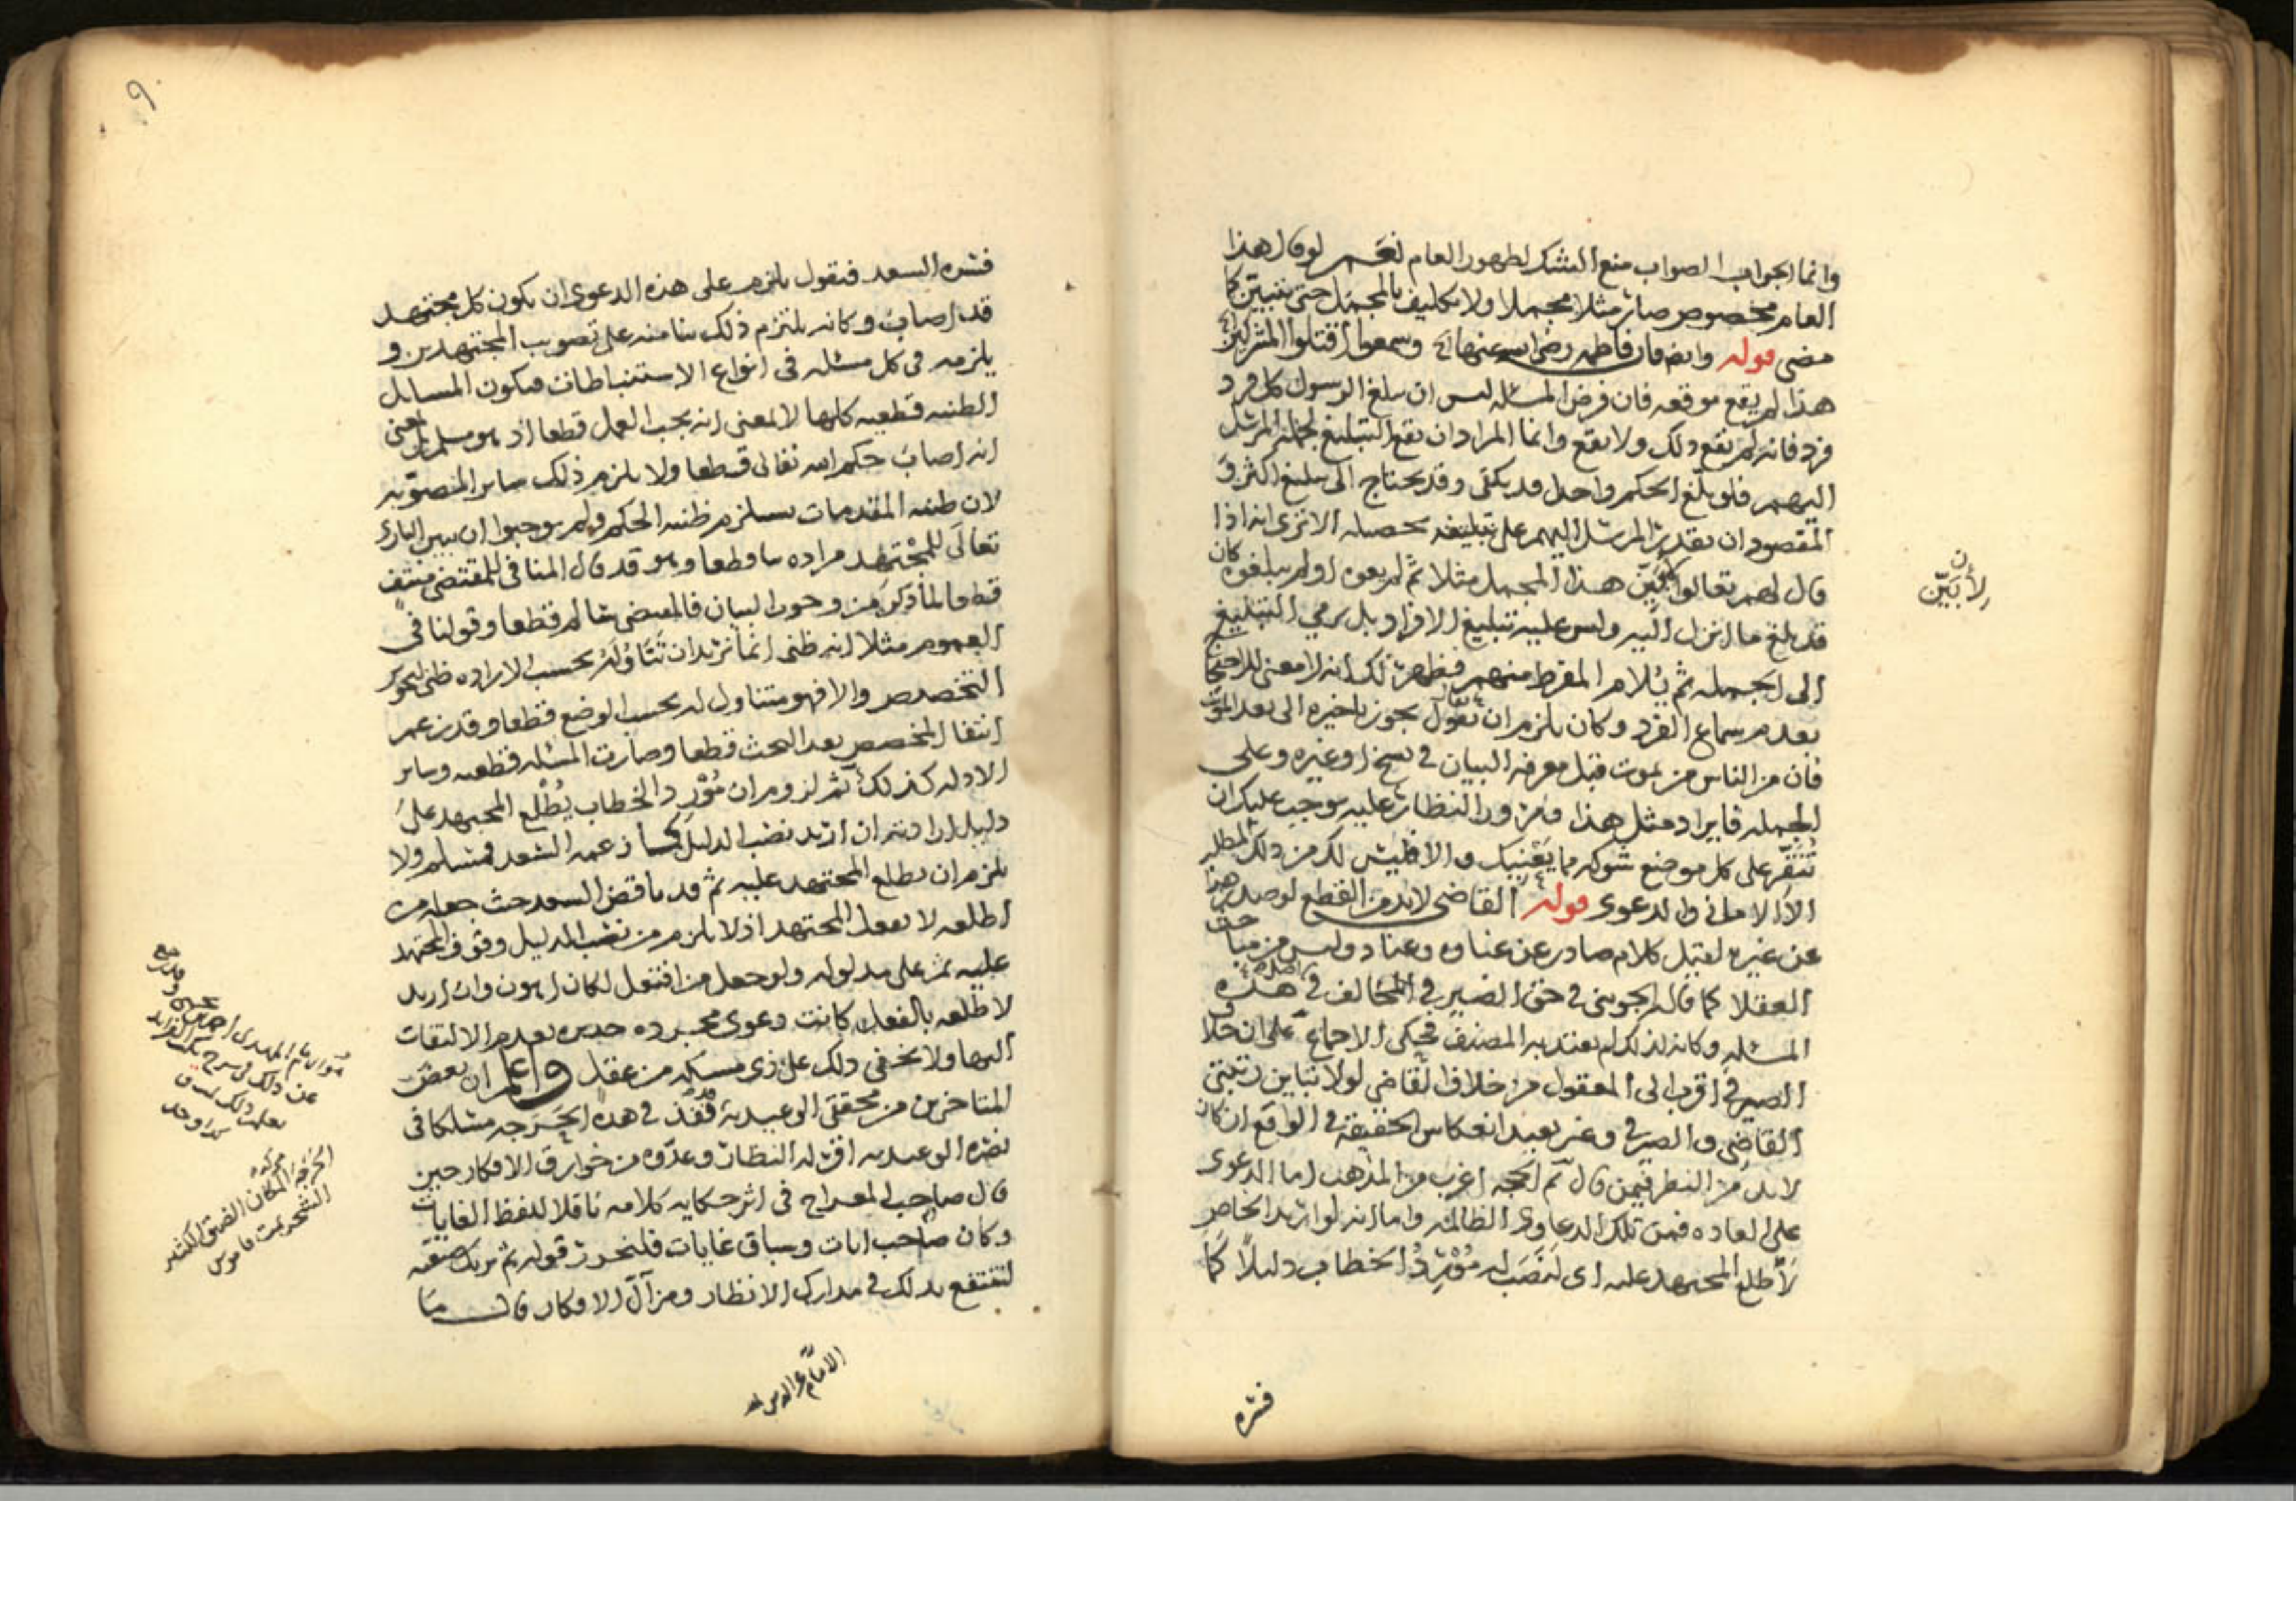 وانما الجواب الصواب منع الشك لظهور العام نعم لو قال هذا
العام مخصوص صار مثلا مجملا ولا تكليف بالمجمل حتى يتبين كما
مضى قوله وايضا فان فاطمه رضى الله عنها الخ وسمعوا اقتلوا المشركين
هذا لم يقع موقعه فان فرض المسئله ليس ان يبلغ الرسول كل فرد
فرد فانه لم يقع ذلك ولا يقع وانما المراد ان يقع التبليغ لجمله المرسل
اليهم فلو بلغ الحكم واحد قد يكفى وقد يحتاج الى تبليغ اكثر و
المقصود ان يقدر المرسل اليهم على تبليغه تحصيله الا ترى انه اذا
قال لهم تعالوا لأبين هذا المجمل مثلا ثم لم يعوه او لم يبلغوه كان
قد بلغ ما انزل اليه وليس عليه تبليغ الافراد بل يرمي التبليغ
الى الجمله ثم يلام المفرط منهم فظهر لك انه لا معنى للاحتجاج
بعدم سماع الفرد وكان يلزم ان نقول يجوز تاخيره الى بعد الموت
فان من الناس من يموت قبل معرفه البيان في نسخ او غيره وعلى
الجمله فايراد مثل هذا ومرور النظار عليه يوجب عليك ان
تنقر على كل موضع شوكه مما يعنيك والا فليس لك من ذلك المطلب
الا الاماني والدعوى قوله القاضى لابد من القطع لو صدر هذا
عن غيره لقيل كلام صادر عن غباوه وعناد وليس من مباحث
العقلا كما قاله الجويني في حق الصيرفي المخالف في اصل هذه
المسئله وكانه لذلك لم يعتد به المصنف فحكى الاجماع على ان خلاف
الصيرفي اقرب الى المعقول من خلاف القاضي لولا تباين رتبتي
القاضي والصيرفي وغير بعيد انعكاس الحقيقة في الواقع ان كان
لابد من النظر فيمن قال ثم الحجه اغرب من المذهب اما الدعوى
على العاده فمن تلك الدعاوى الظالمه واما انه لو اريد الخاص
لأطلع المجتهد عليه اى لنصب له مورد الخطاب دليلا كما
لأبين
ن
فسره
فسره السعد فنقول يلزم على هذه الدعوى ان يكون كل مجتهد
قد اصاب وكانه يلتزم ذلك بنا منه على تصويب المجتهدين و
يلزمه في كل مسئله في انواع الاستنباطات فيكون المسايل
الظنيه قطعيه كلها لا لمعنى انه يجب العمل قطعا اذ هو مسلم بل لمعنى
انه اصاب حكم الله تعالى قطعا ولا يلزم ذلك ساير المصوبه
لان ظنيه المقدمات يستلزم ظنيه الحكم ولم يوجبوا ان يبين البارى
تعالى للمجتهد مراده بيانا قطعا وهو قد قال المنافي للمقتضى منتف
قطعا لما ذكر من وجوب البيان فالمقتضى سالم قطعا وقولنا في
العموم مثلا انه ظنى انما نريد ان تناوله بحسب الاراده ظنى لتجويز
التخصيص والا فهو متناول له بحسب الوضع قطعا وقد زعم
انتفا المخصص بعد البحث قطعا وصارت المسئله قطعيه وساير
الادله كذلك ثم لزوم ان مورد الخطاب يطلع المجتهد على
دليل ارادته ان اريد نصب الدليل كما زعمه السعد فمسلم ولا
يلزم ان يطلع المجتهد عليه ثم قد ناقض السعد حيث جعله من
اطلعه لا بفعل المجتهد اذ لا يلزم من نصب الدليل وقوف المجتهد
عليه ثم على مدلوله ولو جعل من افتعل لكان اهون وان اريد
لاطلعه بالفعل كانت دعوى مجرده جديره بعدم الالتفات
اليها ولا يخفى ذلك على ذى مسكه من عقل واعلم ان بعض
المتاخرين من محققى الوعيدية قد نفذ في هذه الحرجه مسلكا في
نصره الوعيديه اقر له النظار وعدوه من خوارق الافكار حين
قال صاحب المعراج في اثر حكايه كلامه ناقلا للفظ الغايات
وكان صاحب ايات وسباق غايات فلنحرر قوله ثم نريك ضعفه
لتنتفع بذلك في مدارك الانظار ومزال الافكار قال ما
الامام عز الدين
عن ذلك في شرح تلك الفرايد
الحرجه محركه المكان الضيق الكثير
الشجر تمت قاموس